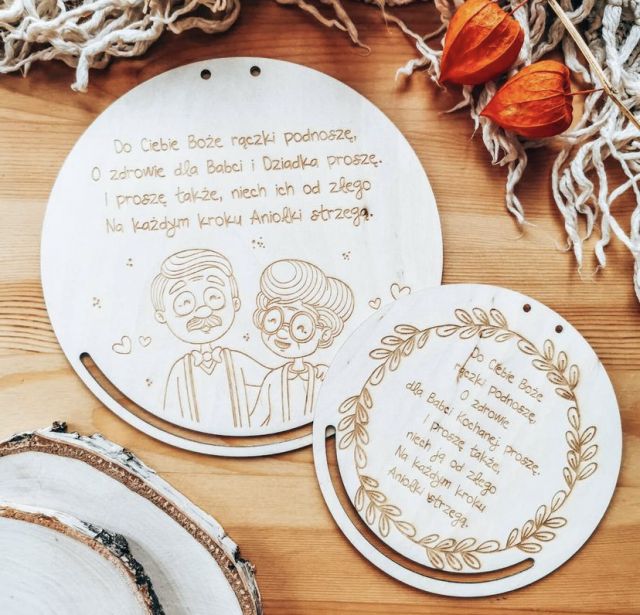 Do Ciebie Boże rączki podnoszę,
O zdrowie dla Babci i Dziadka proszę.
I proszę także, niech ich od złego
Na każdym kroku Aniołki strzegą.
Do Ciebie Boże
rączki podnoszę,
O zdrowie
dla Babci Kochanej proszę.
I proszę także,
niech ją od złego
Na każdym kroku
Aniołki strzegą.